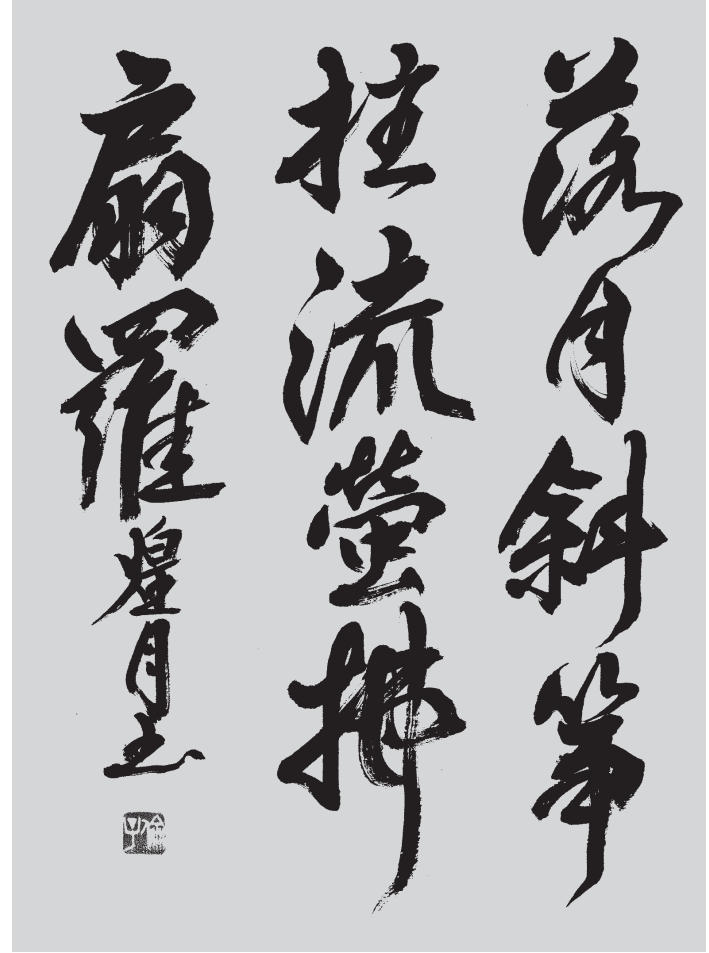 落月斜箏
柱流螢拂
扇羅煌月書